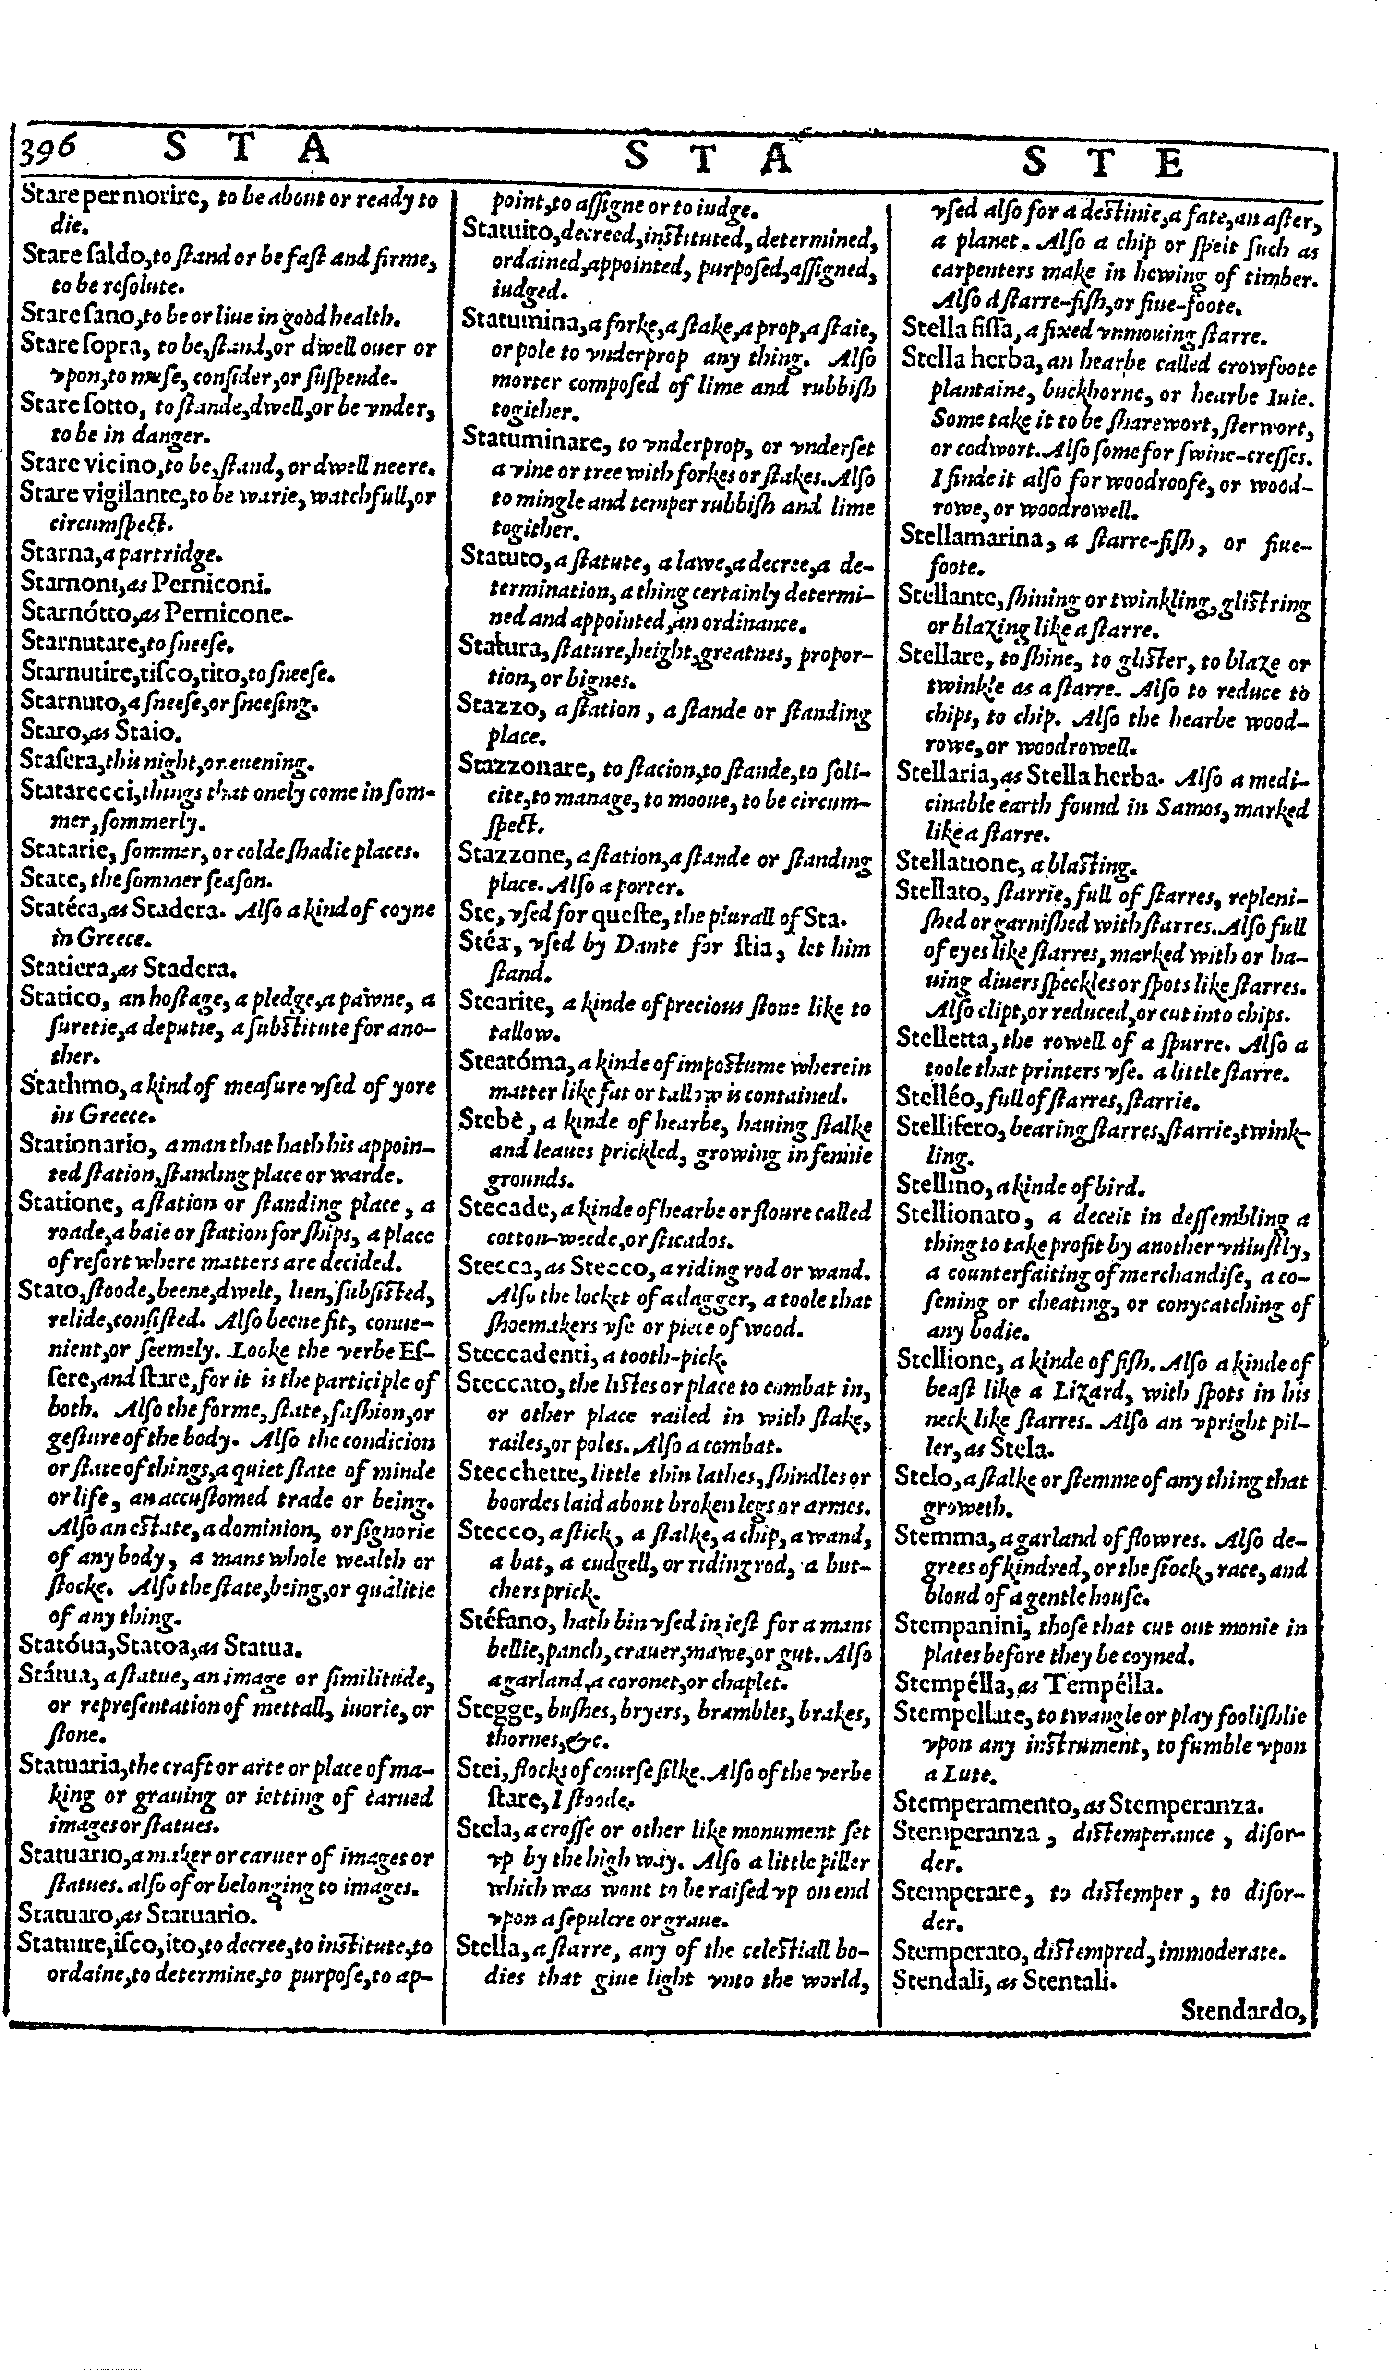 396 S T A S T A S T E
Stare per morire, to be about or ready to
die.
Stare ſaldo, to ſtand or be faſt and firme,
to be reſolute.
Stare ſano, to be or liue in good health.
Stare ſopra, to be, ſtand, or dwell ouer or
vpon, to muſe, conſider, or ſuſpende.
Stare ſotto, to ſtande, dwell, or be vnder,
to be in danger.
Stare vicino, to be, ſtand, or dwell neere.
Stare vigilante, to be warie, watchfull, or
circumſpect.
Starna, a partridge.
Starnoni, as Perniconi.
Starnótto, as Pernicone.
Starnutare, to ſneeſe.
Starnutire, tiſco, tito, to ſneeſe.
Starnuto, a ſneeſe, or ſneeſing.
Staro, as Staio.
Staſera, this night, or euening.
Statarecci, things that onely come in ſom-
mer, ſommerly.
Statarie, ſommer, or colde ſhadie places.
State, the ſommer ſeaſon.
Statéca, as Stadera. Alſo a kind of coyne
in Greece.
Statiera, as Stadera.
Statico, an hoſtage, a pledge, a pawne, a
ſuretie, a deputie, a ſubſtitute for ano-
ther.
Stathmo, a kind of meaſure vſed of yore
in Greece.
Stationario, a man that hath his appoin-
ted ſtation, ſtanding place or warde.
Statione, a ſtation or ſtanding place, a
roade, a baie or ſtation for ſhips, a place
of reſort where matters are decided.
Stato, ſtoode, beene, dwelt, lien, ſubſiſted,
relide, conſiſted. Alſo beene fit, conue-
nient, or ſeemely. Looke the verbe Eſ-
ſere, and ſtare, for it is the participle of
both. Alſo the forme, ſtate, faſhion, or
geſture of the body. Alſo the condicion
or ſtate of things, a quiet ſtate of minde
or life, an accuſtomed trade or being.
Alſo an eſtate, a dominion, or ſignorie
of any body, a mans whole wealth or
ſtocke. Alſo the ſtate, being, or qualitie
of any thing.
Statóua, Statoa, as Statua.
Státua, a ſtatue, an image or ſimilitude,
or repreſentation of mettall, iuorie, or
ſtone.
Statuaria, the craft or arte or place of ma-
king or grauing or ſetting of carued
images or ſtatues.
Statuario, a maker or caruer of images or
ſtatues. alſo of or belonging to images.
Statuaro, as Statuario.
Statuire, iſco, ito, to decree, to inſtitute, to
ordaine, to determine, to purpoſe, to ap-
point, to aſſigne or to iudge.
Statuito, decreed, inſtituted, determined,
ordained, appointed, purpoſed, aſſigned,
iudged.
Statumina, a forke, a ſtake, a prop, a ſtaie,
or pole to vnderprop any thing. Alſo
morter compoſed of lime and rubbiſh
togither.
Statuminare, to vnderprop, or vnderſet
a vine or tree with forkes or ſtakes. Alſo
to mingle and temper rubbiſh and lime
togither.
Statuto, a ſtatute, a lawe, a decree, a de-
termination, a thing certainly determi-
ned and appointed, an ordinance.
Statura, ſtature, height, greatnes, propor-
tion, or bignes.
Stazzo, a ſtation, a ſtande or ſtanding
place.
Stazzonare, to ſtacion, to ſtande, to ſoli-
cite, to manage, to mooue, to be circum-
ſpect.
Stazzone, a ſtation, a ſtande or ſtanding
place. Alſo a porter.
Ste, vſed for queſte, the plurall of Sta.
Stéa, vſed by Dante for ſtia, let him
ſtand.
Stearite, a kinde of precious ſtone like to
tallow.
Steatóma, a kinde of impoſtume wherein
matter like fat or tallow is contained.
Stebè, a kinde of hearbe, hauing ſtalke
and leaues prickled, growing in fennie
grounds.
Stecade, a kinde of hearbe or floure called
cotton-weede, or ſticados.
Stecca, as Stecco, a riding rod or wand.
Alſo the locket of a dagger, a toole that
ſhoemakers vſe or piece of wood.
Steccadenti, a tooth-pick.
Steccato, the liſtes or place to combat in,
or other place railed in with ſtake,
railes, or poles. Alſo a combat.
Stecchette, little thin lathes, ſhindles or
boordes laid about broken legs or armes.
Stecco, a ſtick, a ſtalke, a chip, a wand,
a bat, a cudgell, or riding rod, a but-
chers prick.
Stéfano, hath bin vſed in ieſt for a mans
bellie, panch, crauer, mawe, or gut. Alſo
a garland, a coronet, or chaplet.
Stegge, buſhes, bryers, brambles, brakes,
thornes, &c.
Stei, flocks of courſe ſilke. Alſo of the verbe
ſtare, I ſtoode.
Stela, a croſſe or other like monument ſet
vp by the high way. Alſo a little piller
which was wont to be raiſed vp on end
vpon a ſepulcre or graue.
Stella, a ſtarre, any of the celeſtiall bo-
dies that giue light vnto the world,
vſed alſo for a deſtinie, a fate, an aſter,
a planet. Alſo a chip or ſpeit ſuch as
carpenters make in hewing of timber.
Alſo a ſtarre-fiſh, or fiue-foote.
Stella fiſſa, a fixed vnmouing ſtarre.
Stella herba, an hearbe called crowfoote
plantaine, buckhorne, or hearbe Iuie.
Some take it to be ſharewort, ſterwort,
or codwort. Alſo ſome for ſwine-creſſes.
I finde it alſo for woodroofe, or wood-
rowe, or woodrowell.
Stellamarina, a ſtarre-fiſh, or fiue-
foote.
Stellante, ſhining or twinkling, gliſtring
or blazing like a ſtarre.
Stellare, to ſhine, to gliſter, to blaze or
twinkle as a ſtarre. Alſo to reduce to
chips, to chip. Alſo the hearbe wood-
rowe, or woodrowell.
Stellaria, as Stella herba. Alſo a medi-
cinable earth found in Samos, marked
like a ſtarre.
Stellatione, a blaſting.
Stellato, ſtarrie, full of ſtarres, repleni-
ſhed or garniſhed with ſtarres. Alſo full
of eyes like ſtarres, marked with or ha-
uing diuers ſpeckles or ſpots like ſtarres.
Alſo clipt, or reduced, or cut into chips.
Stelletta, the rowell of a ſpurre. Alſo a
toole that printers vſe. a little ſtarre.
Stelléo, full of ſtarres, ſtarrie.
Stellifero, bearing ſtarres, ſtarrie, twink-
ling.
Stellino, a kinde of bird.
Stellionato, a deceit in deſſembling a
thing to take profit by another vniuſtly,
a counterfaiting of merchandiſe, a co-
ſening or cheating, or conycatching of
any bodie.
Stellione, a kinde of fiſh. Alſo a kinde of
beaſt like a Lizard, with ſpots in his
neck like ſtarres. Alſo an vpright pil-
ler, as Stela.
Stelo, a ſtalke or ſtemme of any thing that
groweth.
Stemma, a garland of flowres. Alſo de-
grees of kindred, or the ſtock, race, and
bloud of a gentle houſe.
Stempanini, thoſe that cut out monie in
plates before they be coyned.
Stempélla, as Tempélla.
Stempellate, to twangle or play fooliſhlie
vpon any inſtrument, to fumble vpon
a Lute.
Stemperamento, as Stemperanza.
Stemperanza, diſtemperance, diſor-
der.
Stemperare, to diſtemper, to diſor-
der.
Stemperato, diſtempred, immoderate.
Stendali, as Stentali.
Stendardo,